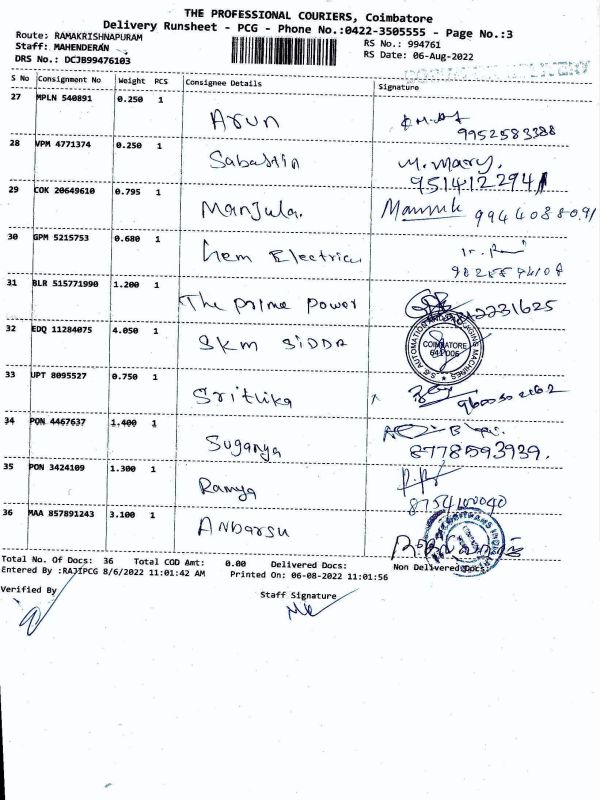 THE PROFESSIONAL COURIERS, Coimbatore
Delivery Runsheet - PCG - Phone No.:0422-3505555 - Page No.:3
Route: RAMAKRISHNAPURAM
RS No.: 994761
Staff: MAHENDERAN
RS Date: 06-Aug-2022
DRS No.: DCJB99476103
S No Consignment No Weight PCS Consignee Details Signature
27 MPLN 540891 0.250 1 Arun
9952583388
28 VPM 4771374 0.250 1 Sabastin M. Mary.
9514122941
29 COK 20649610 0.795 1 Manjula. 9944088091
30 GPM 5215753 0.680 1 Gem Electrica
31 BLR 515771990 1.200 1 The prime power
32 EDQ 11284075 4.050 1 SKM SIDDA
COIMBATORE
641 006
33 UPT 8095527 0.750 1 Srithika
34 PON 4467637 1.400 1 Suganya
8778593939.
35 PON 3424109 1.300 1 Ramya
8754100040
36 MAA 857891243 3.100 1 Anbarsu
Total No. Of Docs: 36 Total COD Amt: 0.00 Delivered Docs: Non Delivered Docs:
Entered By :RAJIPCG 8/6/2022 11:01:42 AM Printed On: 06-08-2022 11:01:56
Verified By Staff Signature